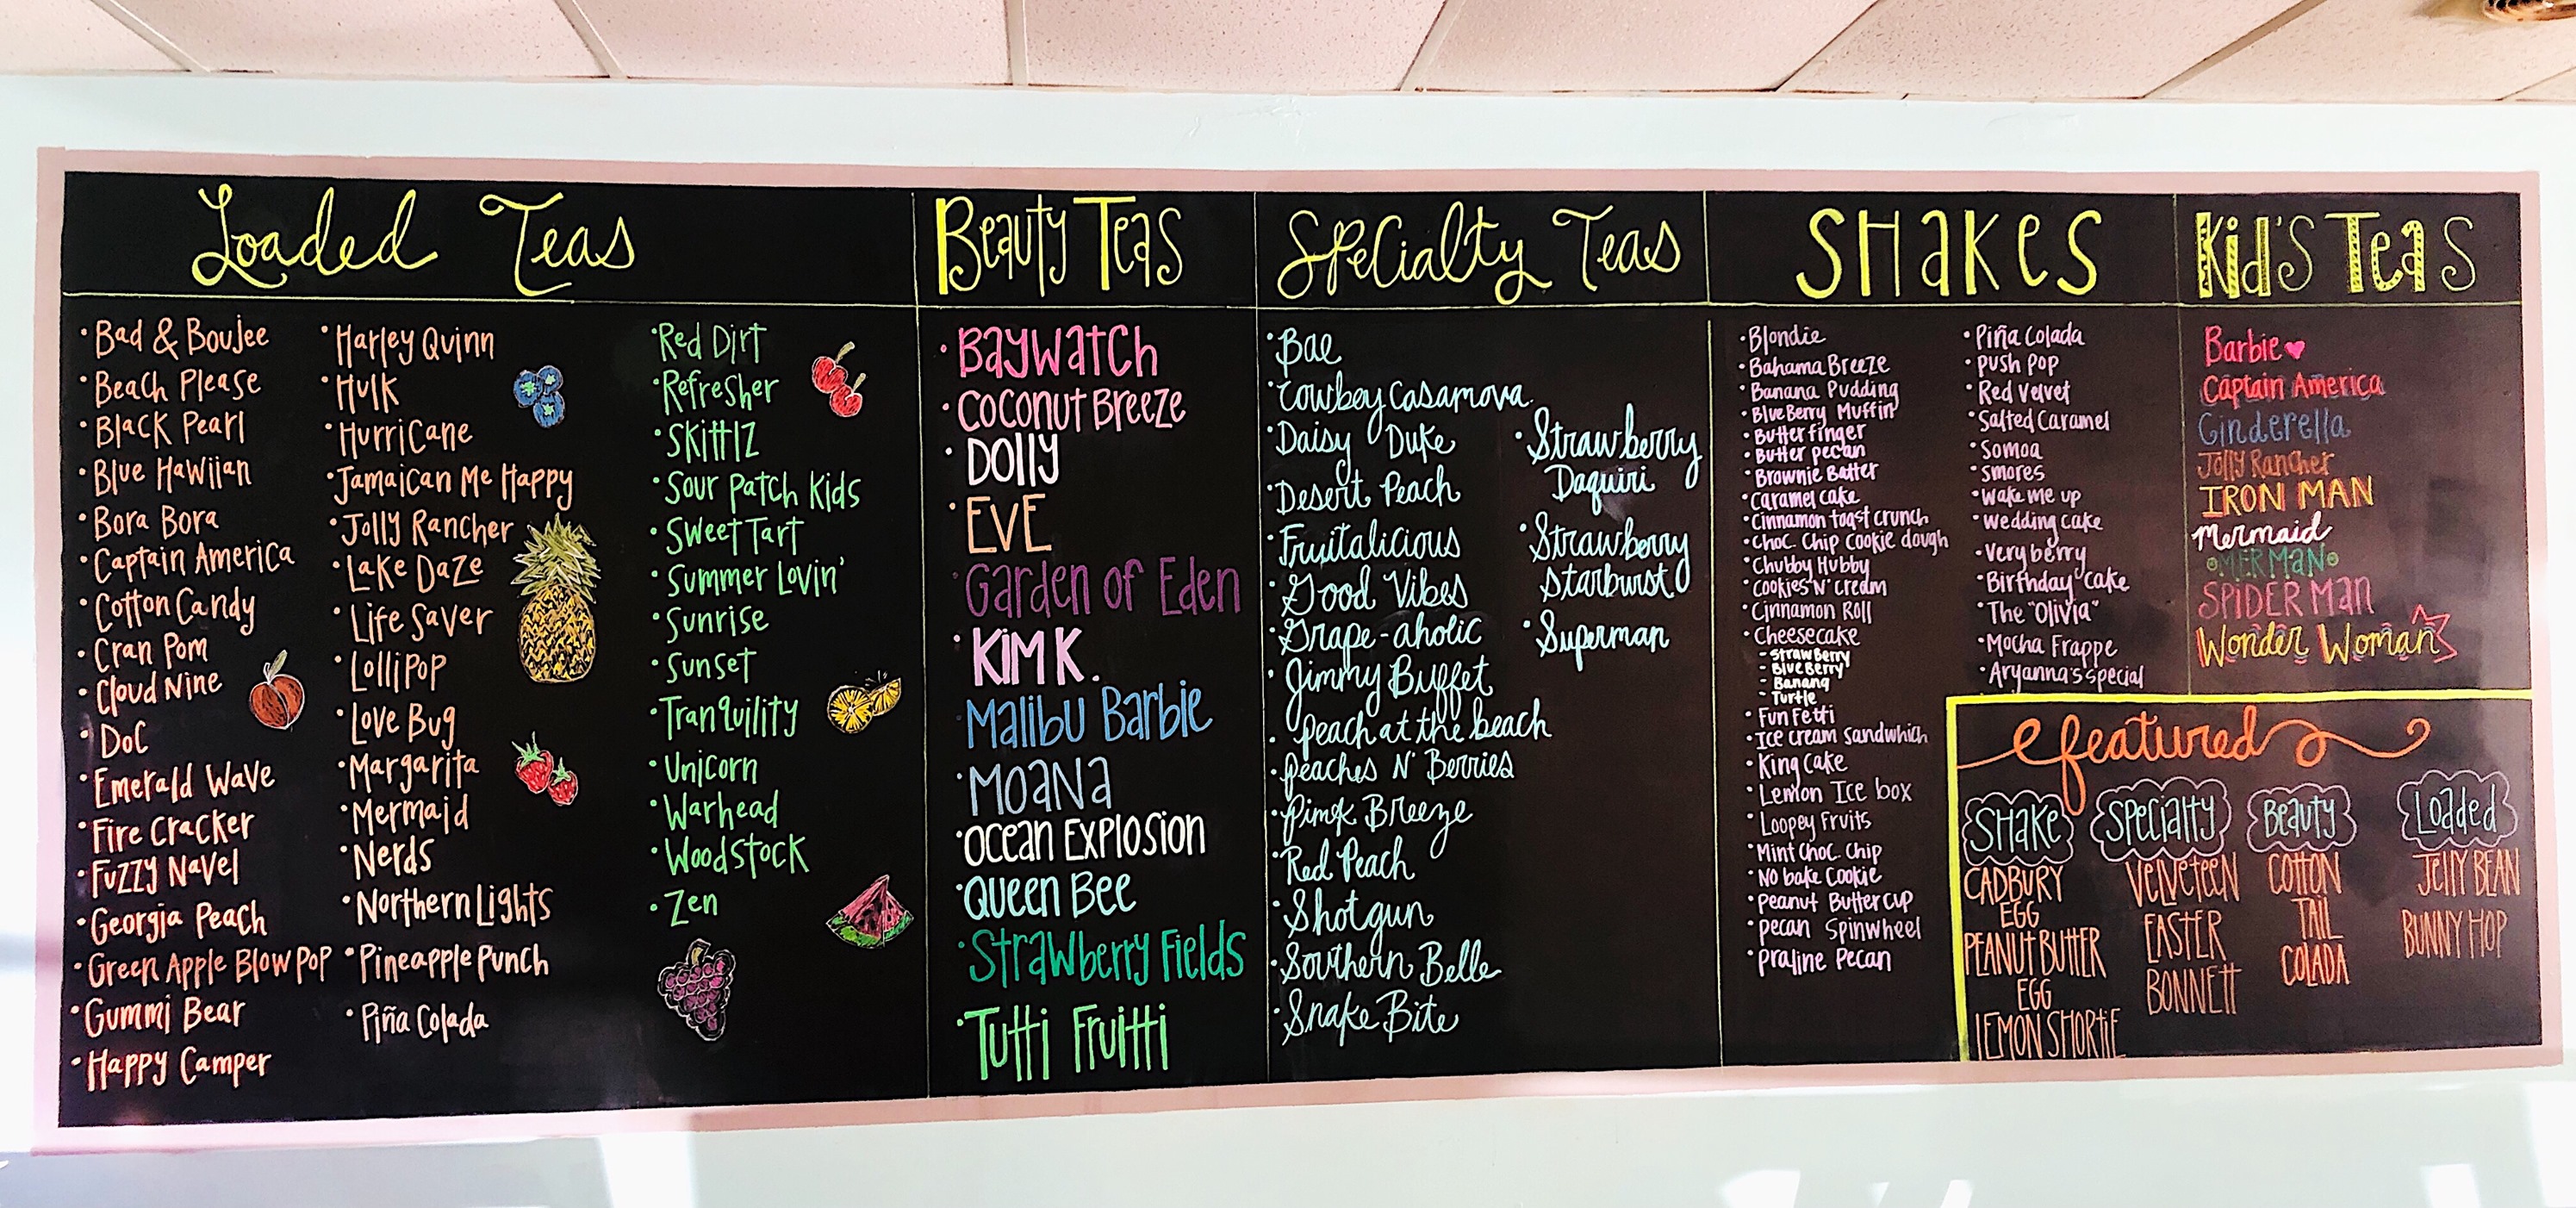 Loaded Teas
Bad & Boujee
Beach Please
Black Pearl
Blue Hawiian
Bora Bora
Captain America
Cotton Candy
Cran Pom
Cloud Nine
Doc
Emerald Wave
Fire Cracker
Fuzzy Navel
Georgia Peach
Green Apple Blow Pop
Gummi Bear
Happy Camper
Harley Quinn
Hulk
Hurricane
Jamaican Me Happy
Jolly Rancher
Lake Daze
Life Saver
Lollipop
Love Bug
Margarita
Mermaid
Nerds
Northern Lights
Pineapple Punch
Piña Colada
Red Dirt
Refresher
Skittlz
Sour Patch Kids
Sweet Tart
Summer Lovin'
Sunrise
Sunset
Tranquility
Unicorn
Warhead
Woodstock
Zen
Beauty Teas
Baywatch
Coconut Breeze
Dolly
Eve
Garden of Eden
Kim K.
Malibu Barbie
Moana
Ocean Explosion
Queen Bee
Strawberry Fields
Tutti Fruitti
Specialty Teas
Bae
Cowboy Casamova
Daisy Duke
Desert Peach
Fruitalicious
Good Vibes
Grape-aholic
Jimmy Buffet
Peach at the beach
Peaches N' Berries
Pink Breeze
Red Peach
Shotgun
Southern Belle
Snake Bite
Strawberry
Daquiri
Strawberry
Starburst
Superman
SHakes
Blondie
Bahama Breeze
Banana Pudding
BlueBerry Muffin
Butterfinger
Butter pecan
Brownie Batter
Caramel cake
Cinnamon toast crunch
Choc. Chip cookie dough
Chubby Hubby
Cookies 'N' cream
Cinnamon Roll
Cheesecake
- StrawBerry
- BlueBerry
- Banana
- Turtle
Fun Fetti
Ice cream sandwhich
King cake
Lemon Ice box
Loopey Fruits
Mint Choc. Chip
No bake Cookie
Peanut Butter cup
pecan Spinwheel
Praline Pecan
Piña Colada
Push Pop
Red Velvet
Salted Caramel
Somoa
Smores
Wake me up
Wedding cake
Very berry
Birthday cake
The "Olivia"
Mocha Frappe
Aryanna's special
Kid's Teas
Barbie
Captain America
Cinderella
Jolly Rancher
IRON MAN
Mermaid
MERMAN
SPIDER Man
Wonder Woman
featured
SHake
CADBURY
EGG
PEANUT BUTTER
EGG
LEMON SHORTIE
Specialty
VELVETEEN
EASTER
BONNETT
Beauty
COTTON
TAIL
COLADA
Loaded
JELLY BEAN
BUNNY HOP